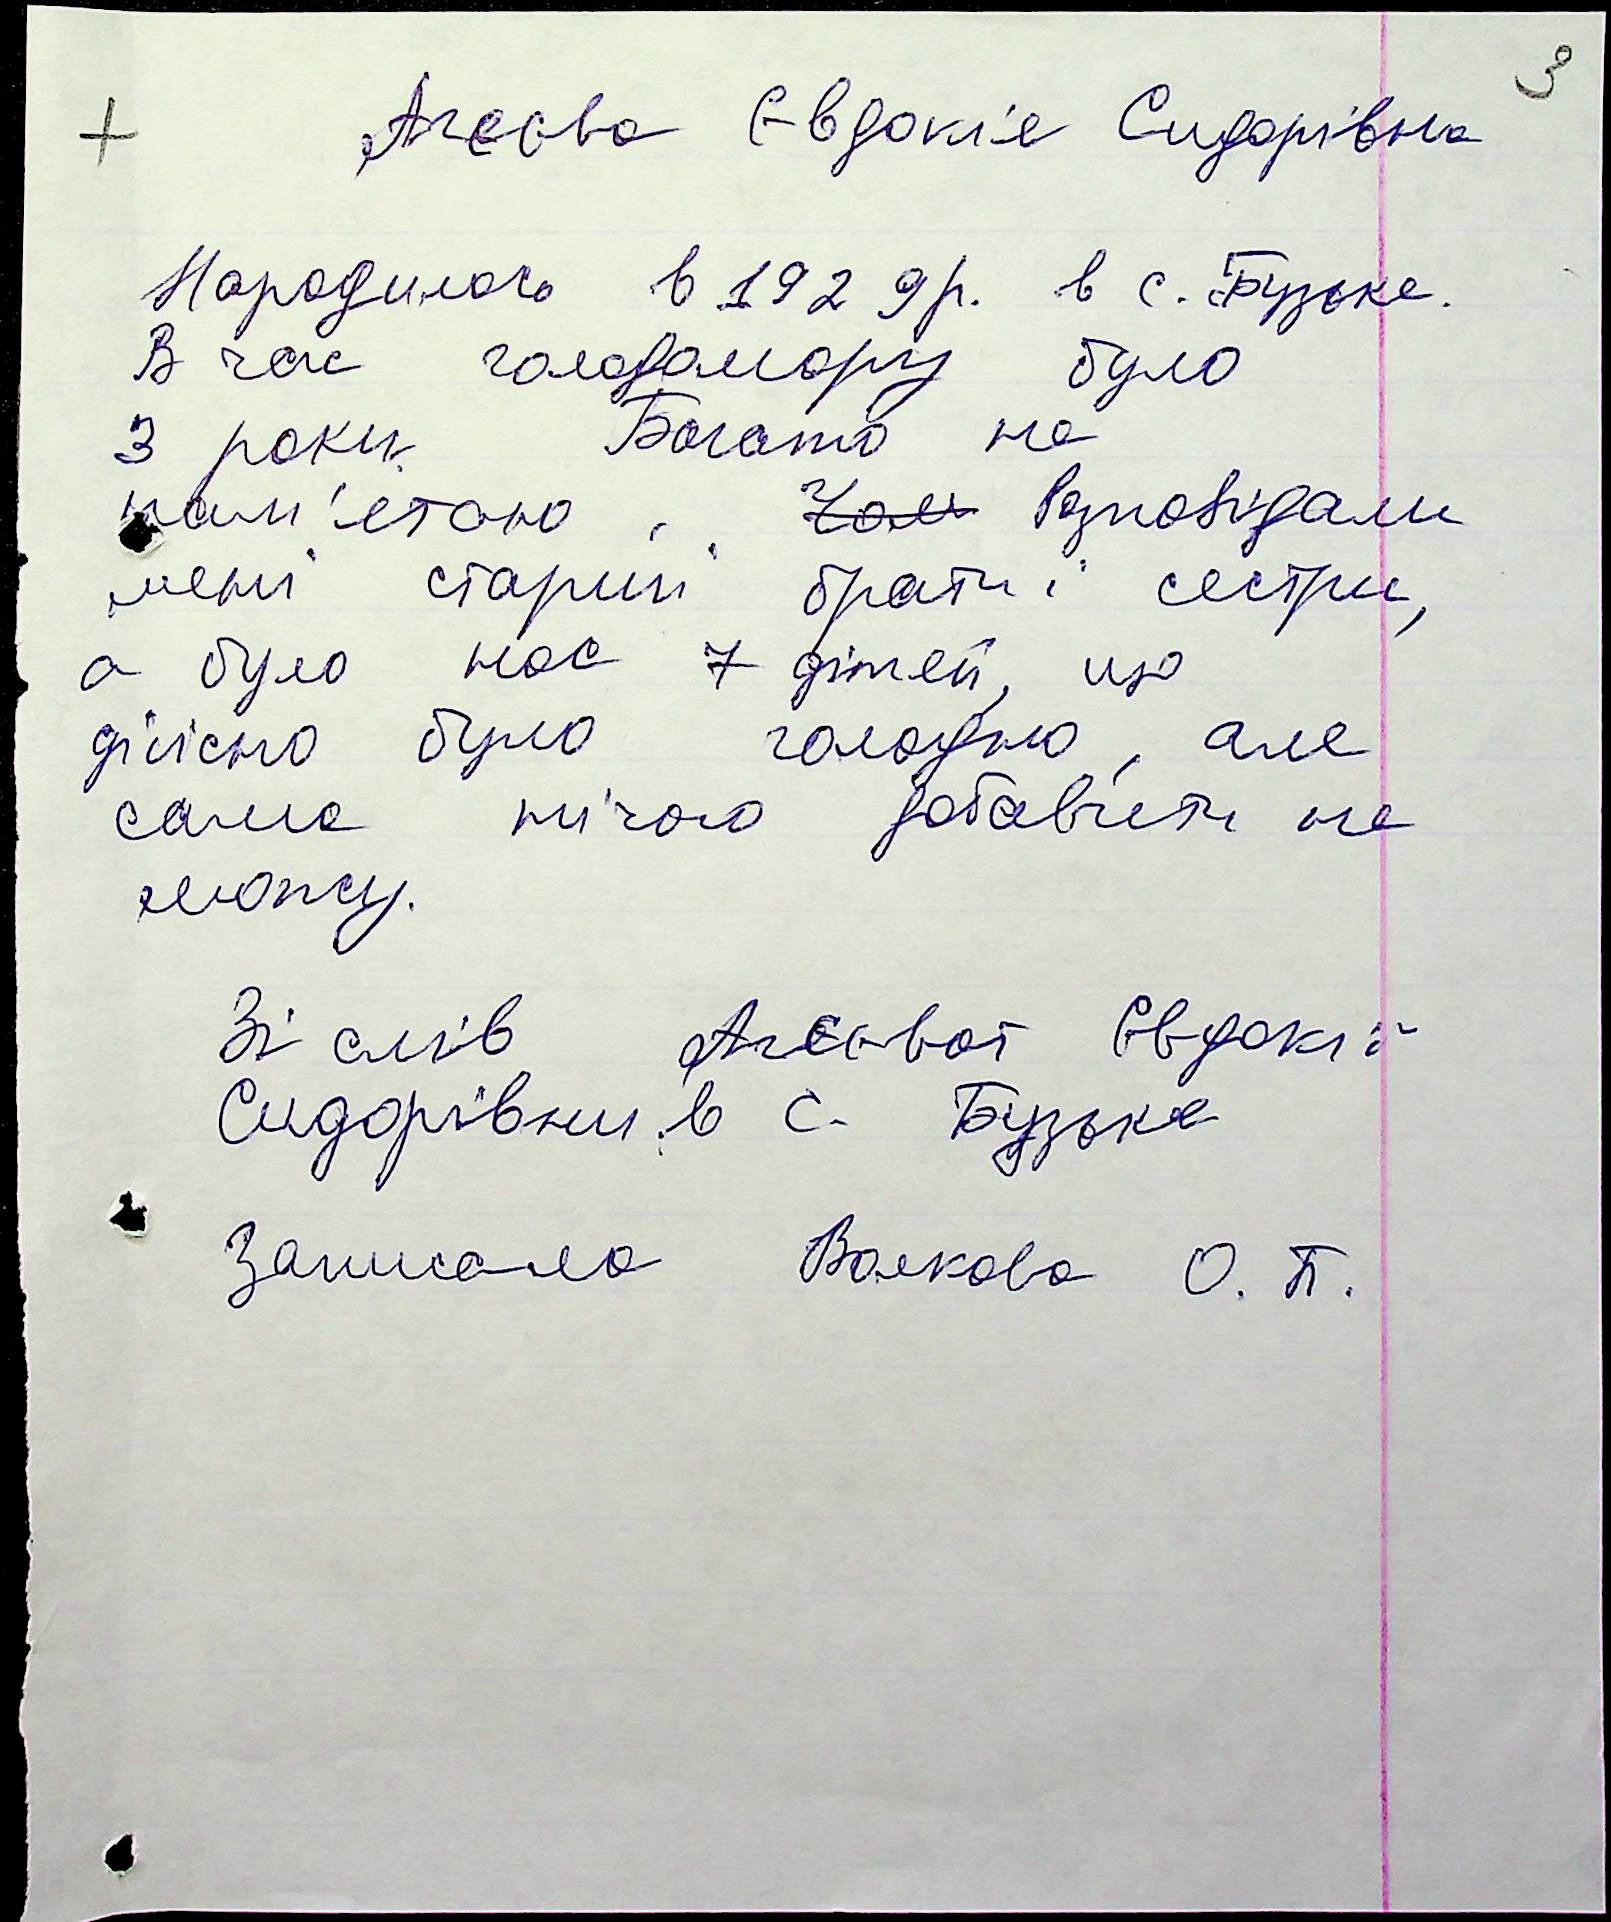 3
+ Агєєва Євдокія Сидорівна
Народилась в 1929р. в с. Бузьке.
В час голодомору було
3 роки. Багато не
пам'ятаю. Розповідали
мені старші брати і сестри,
а було нас 7 дітей, що
дійсно було голодно, але
сама нічого добавити не
можу.
Зі слів Агєєвої Євдокії
Сидорівни в с. Бузьке
Записала Волкова О. П.